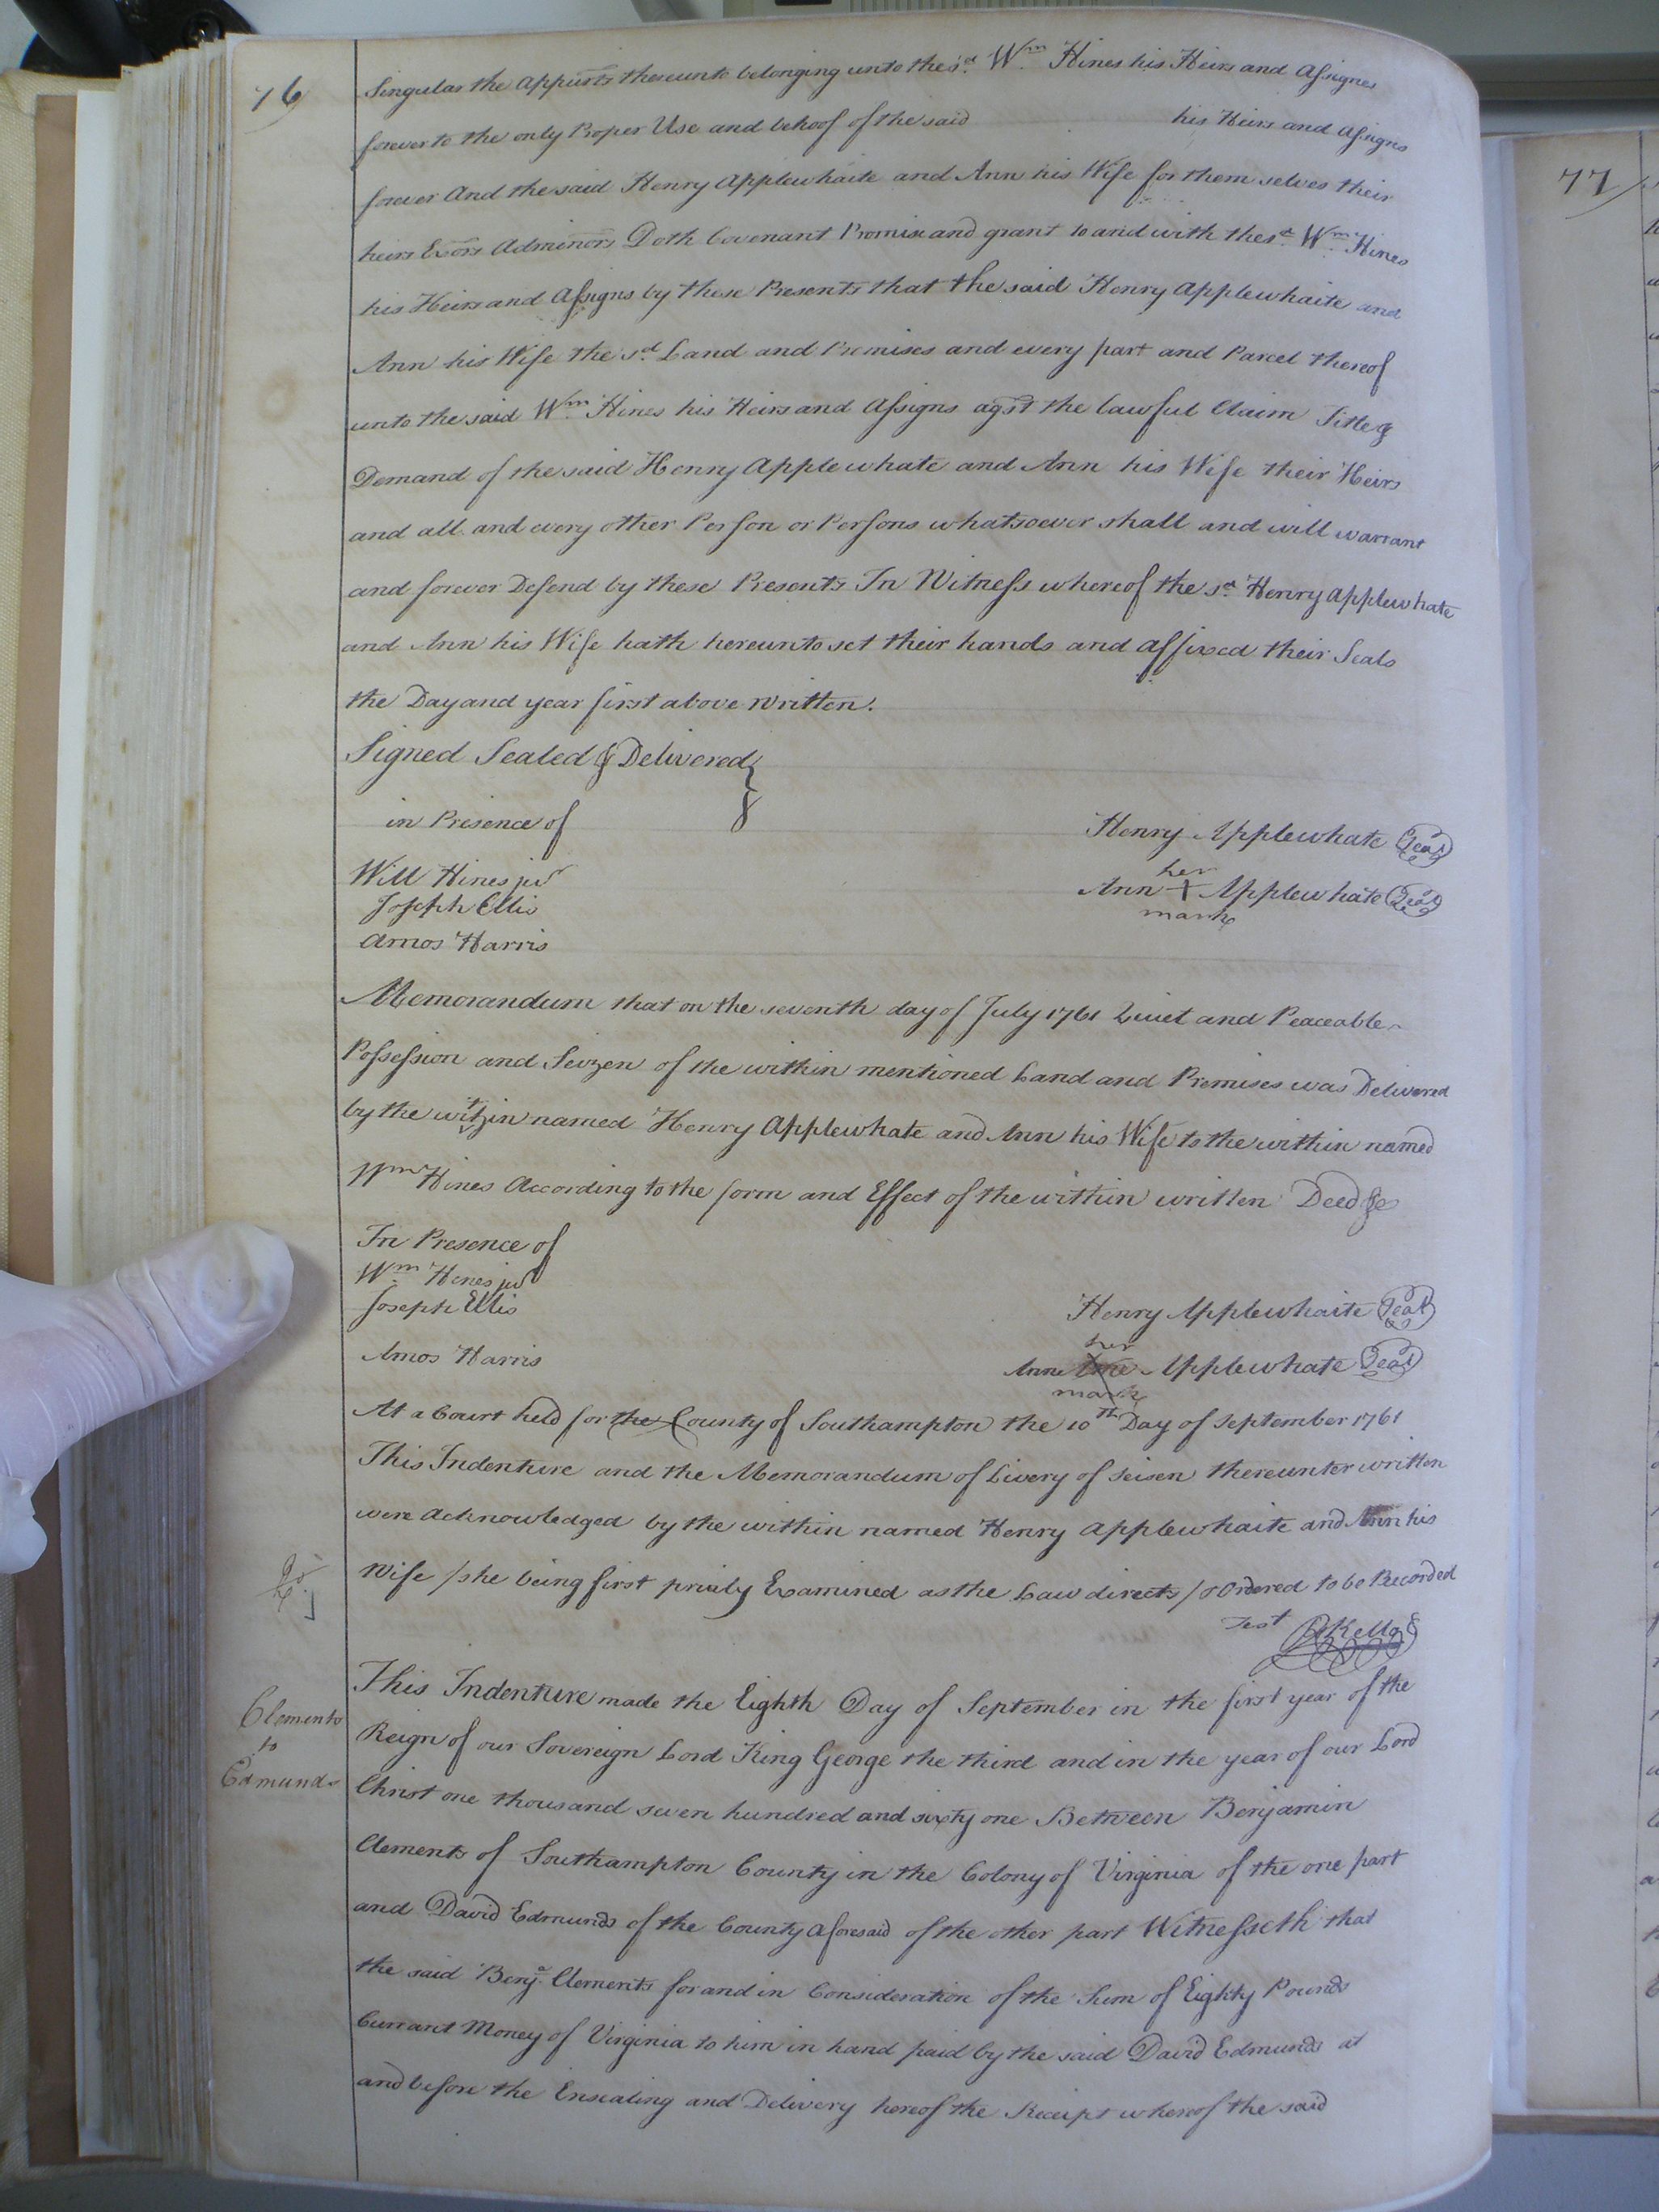 76
Singular the Appurts thereunto belonging unto the sd. Wm Hines his Heirs and Assignes
forever to the only Proper Use and behoof of the said his Heirs and Assigns
forever And the said Henry Applewhaite and Ann his Wife for them selves their
heirs Exors Adminors Doth Covenant Promise and grant to and with the sd. Wm Hines
his Heirs and Assigns by these Presents that the said Henry Applewhaite and
Ann his Wife the sd. Land and Premises and every part and Parcel thereof
unto the said Wm Hines his Heirs and Assigns agst the lawful Claim Title &
Demand of the said Henry Applewhate and Ann his Wife their Heirs
and all and every other Person or Persons whatsoever shall and will warrant
and forever Defend by these Presents In Witness whereof the sd. Henry Applewhate
and Ann his Wife hath hereunto set their hands and affixed their Seals
the Day and year first above written.
Signed Sealed & Delivered
in Presence of
Henry Applewhate Seal
Will Hines jur
her
Ann + Applewhate Seal
mark
Joseph Ellis
Amos Harris
Memorandum that on the seventh day of July 1761 Quiet and Peaceable
Possession and Seizen of the within mentioned Land and Premises was Delivered
by the within named Henry Applewhate and Ann his Wife to the within named
Wm Hines According to the form and Effect of the within written Deed &c
In Presence of
Wm Hines jur
Joseph Ellis
Henry Applewhaite Seal
her
Amos Harris
Anne Applewhate Seal
mark
At a Court held for the County of Southampton the 10th Day of September 1761
This Indenture and the Memorandum of Livery of Seisen thereunter written
were Acknowledged by the within named Henry Applewhaite and Ann his
Wife /she being first privily Examined as the Law directs/ & Ordered to be Recorded
Test RKello
Clements
to
Edmunds
This Indenture made the Eighth Day of September in the first year of the
Reign of our Sovereign Lord King George the third and in the year of our Lord
Christ one thousand seven hundred and sixty one Between Benjamin
Clements of Southampton County in the Colony of Virginia of the one part
and David Edmunds of the County aforesaid of the other part Witnesseth that
the said Benja. Clements for and in Consideration of the Sum of Eighty Pounds
Currant Money of Virginia to him in hand paid by the said David Edmunds at
and before the Ensealing and Delivery hereof the Receipt whereof the said
77